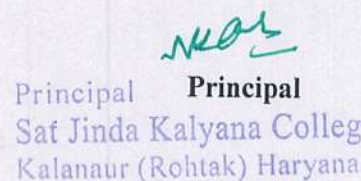 Principal Principal
Sat Jinda Kalyana Colleg
Kalanaur (Rohtak) Haryana